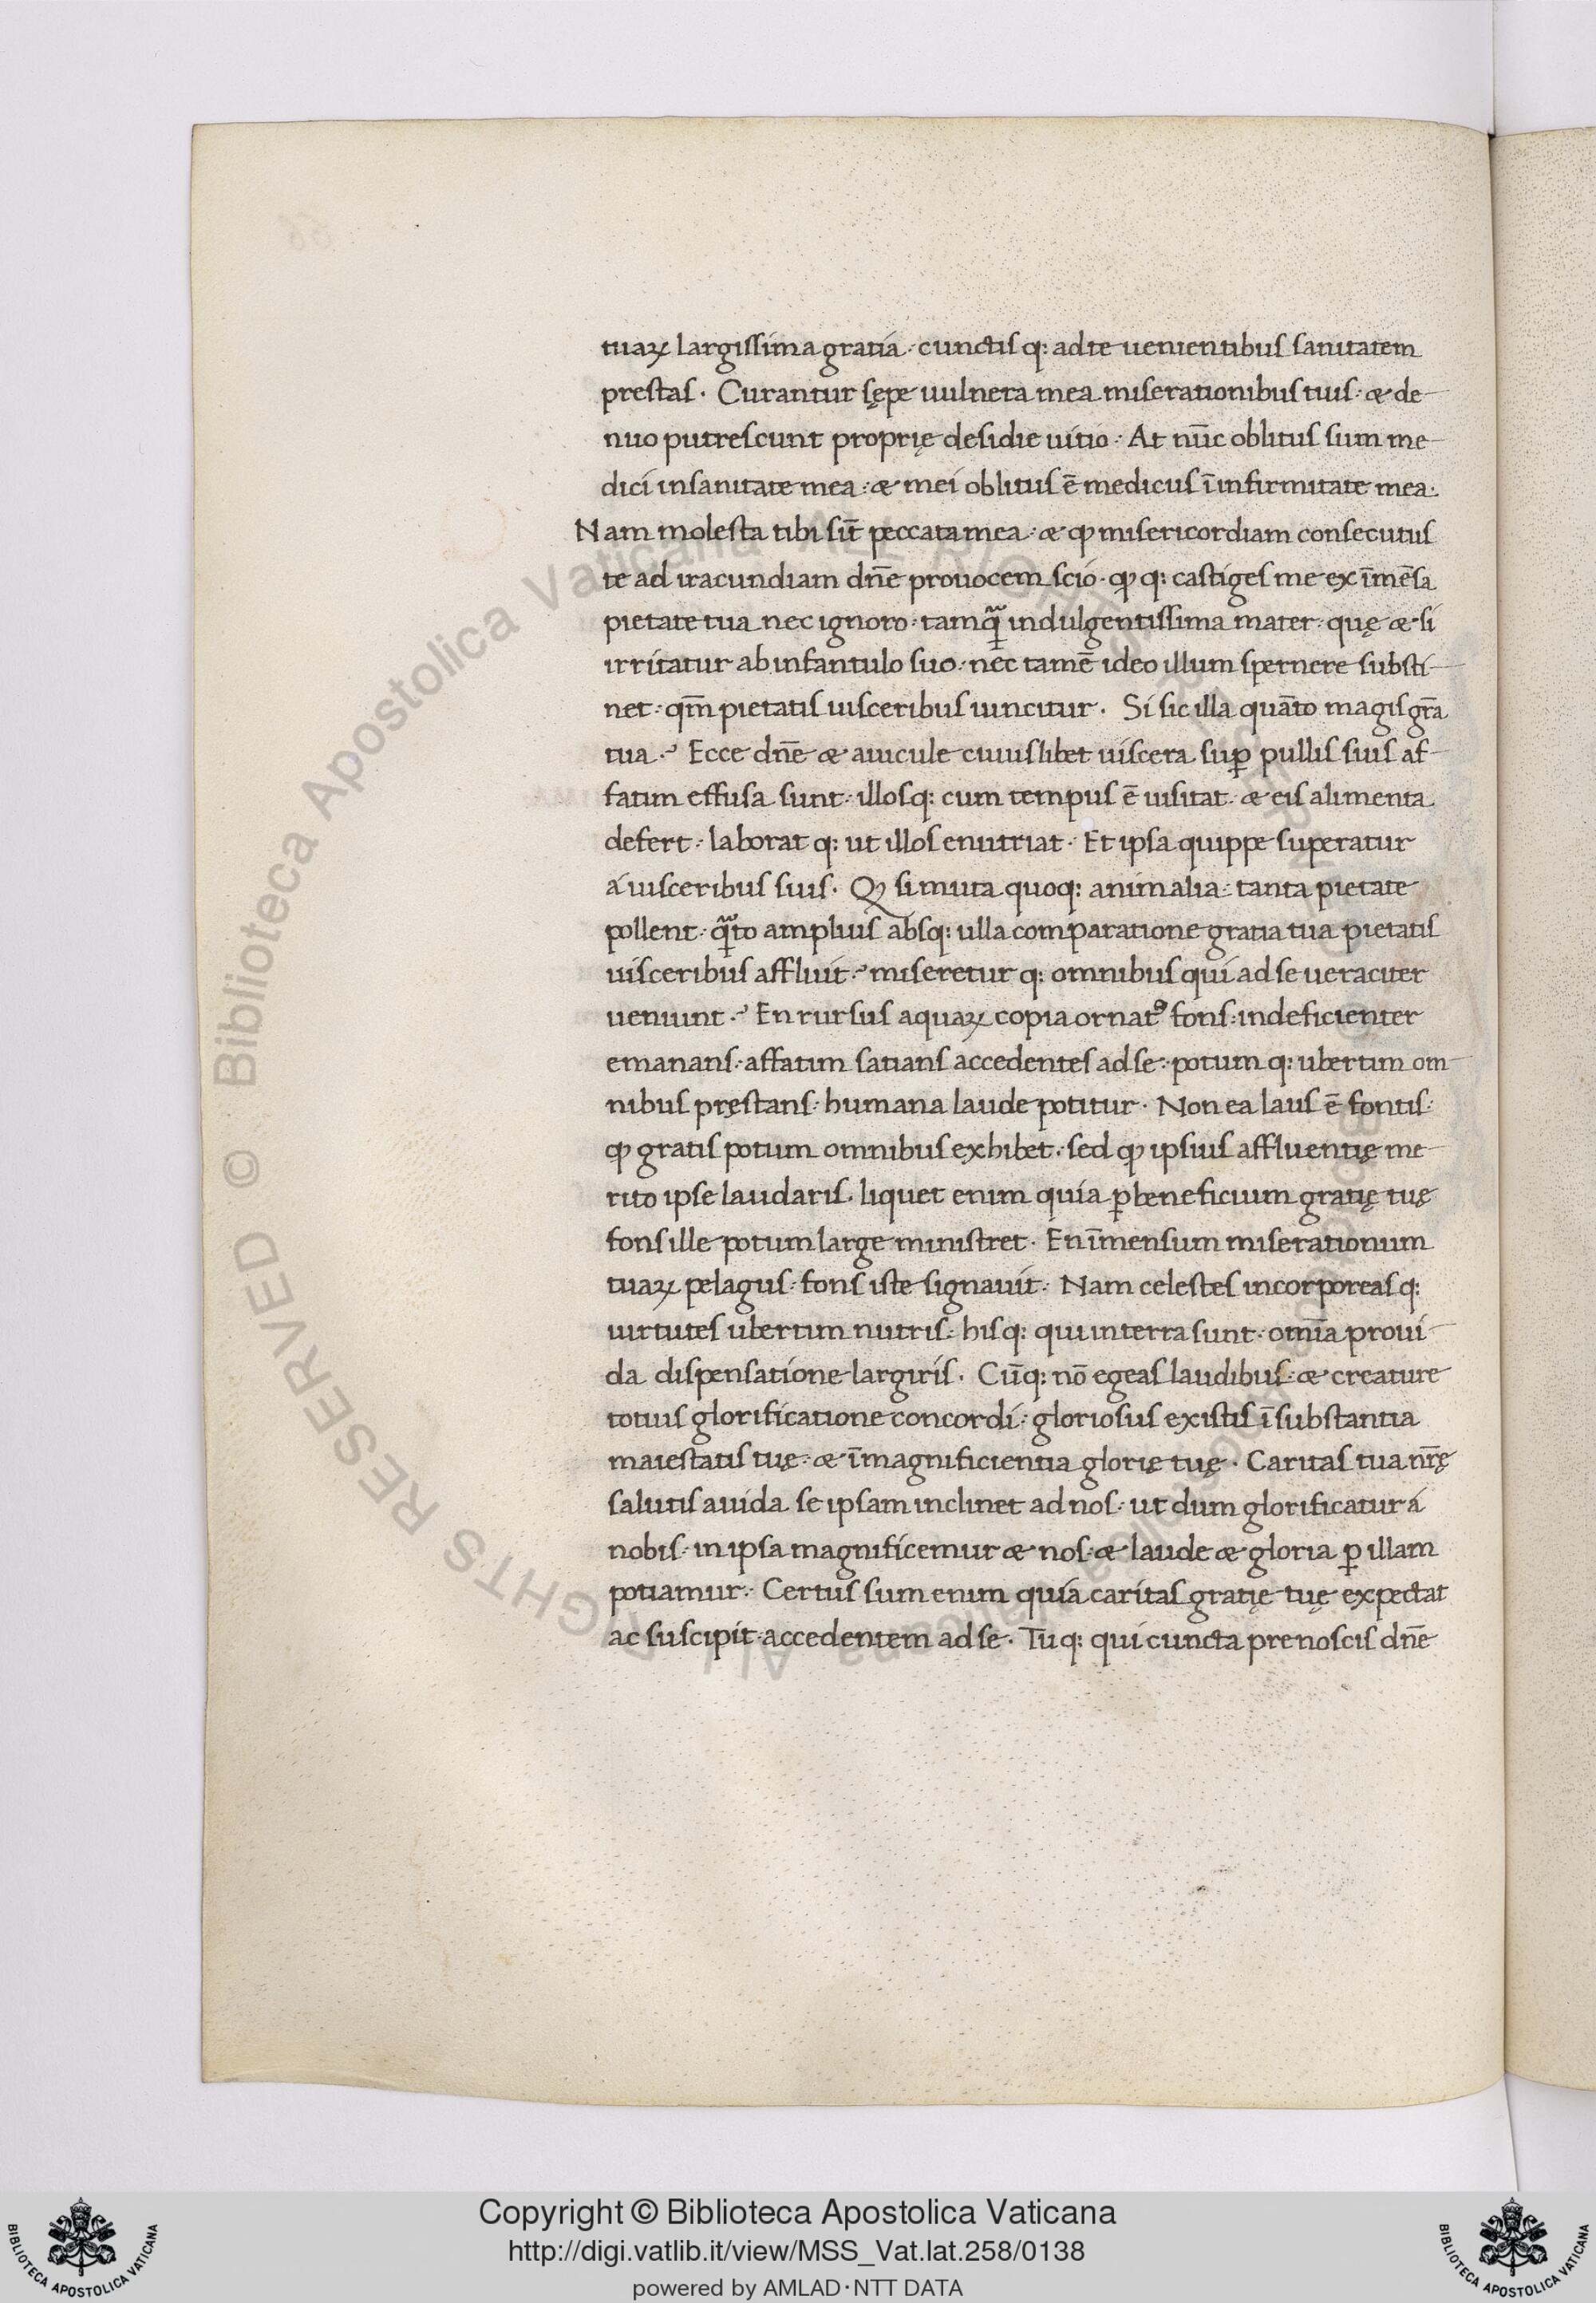 tuaꝝ largissima gratia · cunctisq: ad te uenientibus sanitatem
prestas · Curantur sępe uulnera mea miserationibus tuis · & de-
nuo putrescunt proprię desidie uitio · At nūc oblitus sum me-
dici in sanitate mea · & mei oblitus ē medicus ī infirmitate mea ·
Nam molesta tibi sūt peccata mea · & ꝙ misericordiam consecutus
te ad iracundiam dn̄e prouocem scio · ꝙq: castiges me ex īmēsa
pietate tua nec ignoro · tamꝗᷓ indulgentissima mater · quę & si
irritatur ab infantulo suo · nec tamē ideo illum spernere susti-
net · qm̄ pietatis uisceribus uincitur · Si sic illa quāto magis gr̄a
tua ·⁊ Ecce dn̄e & auicule cuiuslibet uiscera suꝑ pullis suis af-
fatim effusa sunt · illosq: cum tempus ē uisitat · & eis alimenta
defert · laboratq: ut illos enutriat · Et ipsa quippe superatur
á uisceribus suis · Ꝙ si muta quoq: animalia · tanta pietate
pollent · ꝗᷓto amplius absq: ulla comparatione gratia tua pietatis
uisceribus affluit ·⁊ misereturq: omnibus qui ad se ueraciter
ueniunt ·⁊ En rursus aquaꝝ copia ornatꝰ fons · indeficienter
emanans · affatim satians accedentes ad se · potumq: ubertim om-
nibus pręstans · humana laude potitur · Non ea laus ē fontis ·
ꝙ gratis potum omnibus exhibet · sed ꝙ ipsius affluentię me-
rito ipse laudaris · liquet enim quia ꝑ beneficium gratię tuę
fons ille potum large ministret · En īmensum miserationum
tuaꝝ pelagus · fons iste signauit · Nam celestes incorporeasq:
uirtutes ubertim nutris · hisq: qui in terra sunt · omīa proui-
da dispensatione largiris · Cūq: nō egeas laudibus · & creature
totius glorificatione concordi · gloriosus existis ī substantia
maiestatis tuę · & ī magnificientia glorię tuę · Caritas tua nr̄ę
salutis auida se ipsam inclinet ad nos · ut dum glorificatur á
nobis · in ipsa magnificemur & nos · & laude & gloria ꝑ illam
potiamur · Certus sum enim quia caritas gratię tuę expectat
ac suscipit accedentem ad se · Tuq: qui cuncta prenoscis dn̄e
© Biblioteca Apostolica Vaticana ALL RIGHTS RESERVED
Copyright © Biblioteca Apostolica Vaticana
http://digi.vatlib.it/view/MSS_Vat.lat.258/0138
powered by AMLAD·NTT DATA
BIBLIOTECA APOSTOLICA VATICANA
BIBLIOTECA APOSTOLICA VATICANA